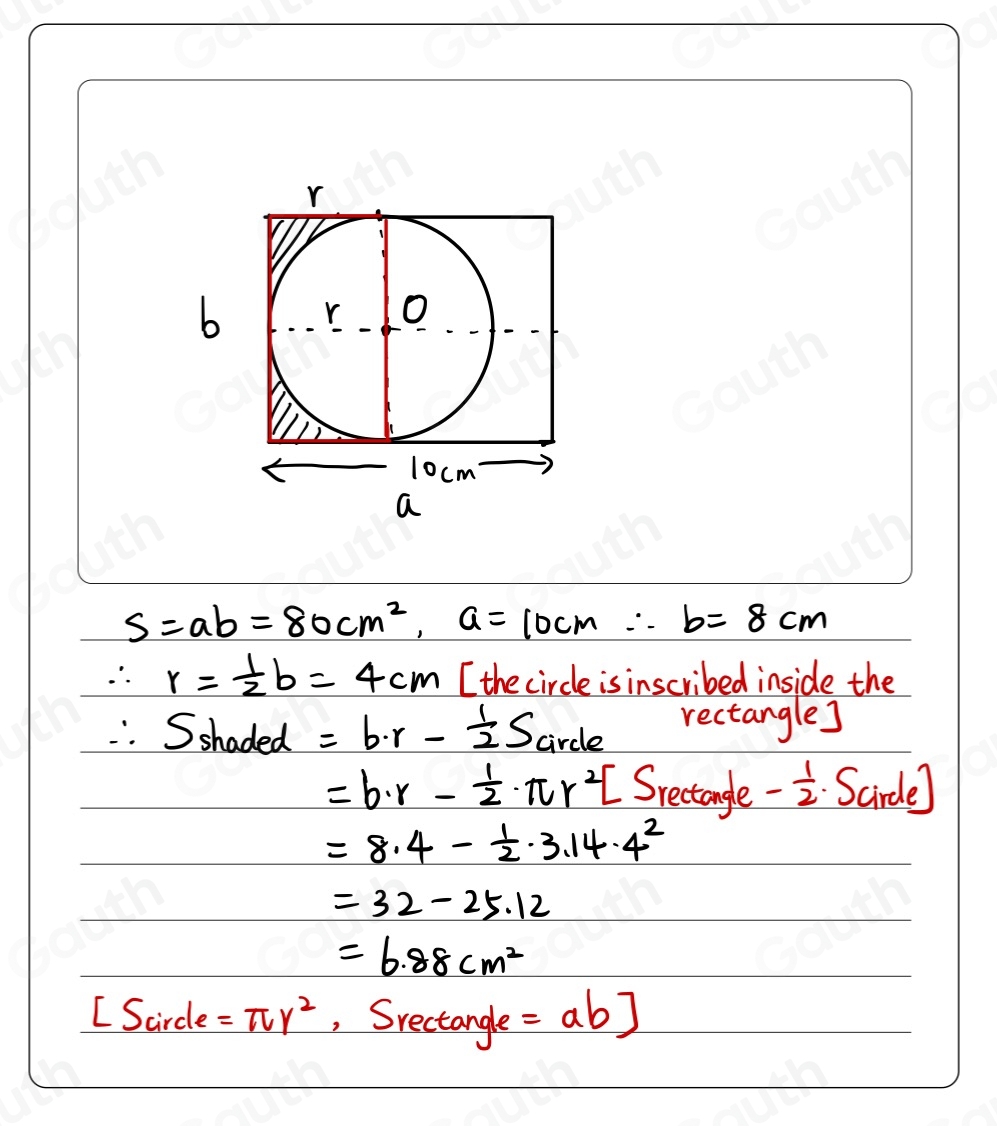 r
b
r
O
10cm
a
S = ab = 80cm², a = 10cm ∴ b = 8 cm
∴ r = 1/2 b = 4cm [the circle is inscribed inside the
rectangle]
∴ S shaded = b·r - 1/2 S circle
= b·r - 1/2 · πr² [S rectangle - 1/2 · S circle]
= 8·4 - 1/2 · 3.14 · 4²
= 32 - 25.12
= 6.88 cm²
[S circle = πr², S rectangle = ab]
Gauth